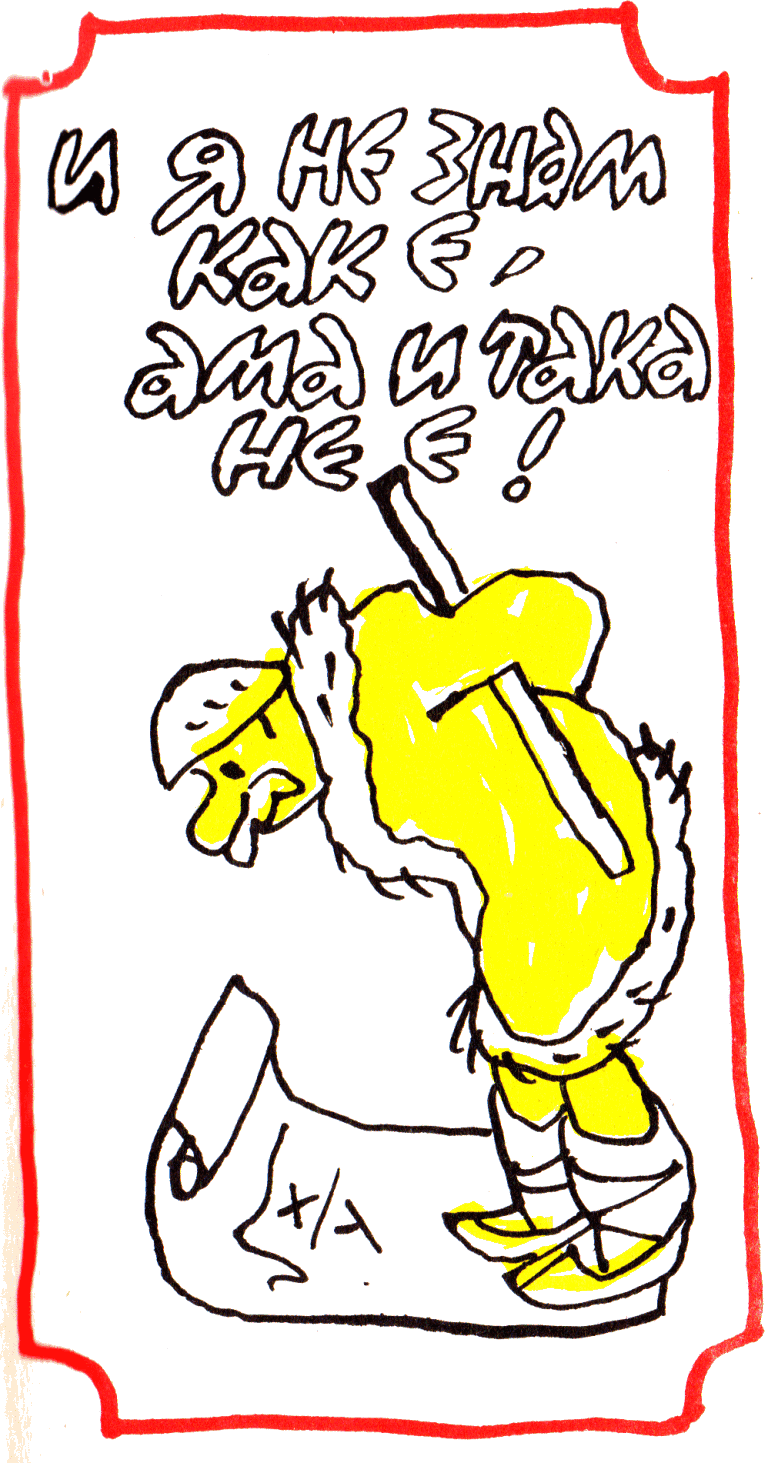 И Я НЕ ЗНАМ
КАК Е,
АМА И ТАКА
НЕ Е!